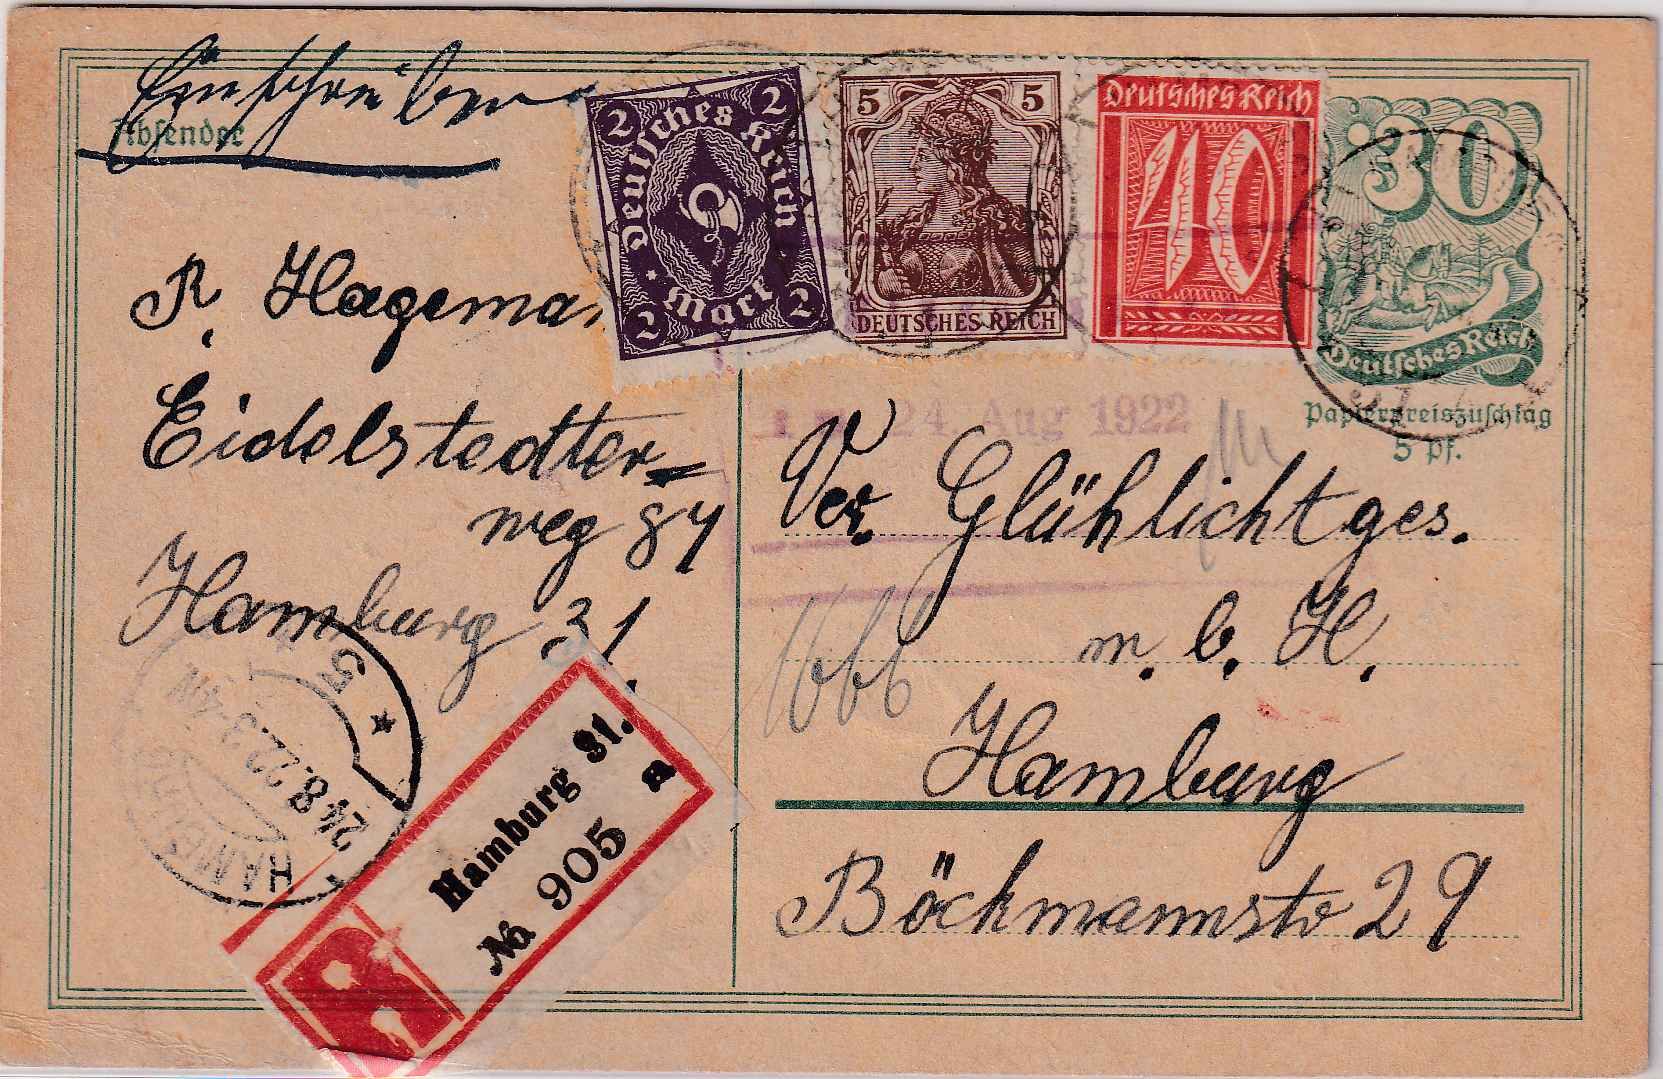 Einschreiben
Absender
R. Hageman
Eidelstedter=
weg 87
Hamburg 31.
2 2
Deutsches Reich
2 Mark 2
5 5
DEUTSCHES REICH
Deutsches Reich
40
30
Deutsches Reich
Papierpreiszuschlag
5 Pf.
24. Aug 1922
Ver. Glühlichtges.
m. b. H.
Hamburg
Böckmannstr 29
HAMBURG
24.8.22.3-4N
* 5
Hamburg 31.
a
№ 905